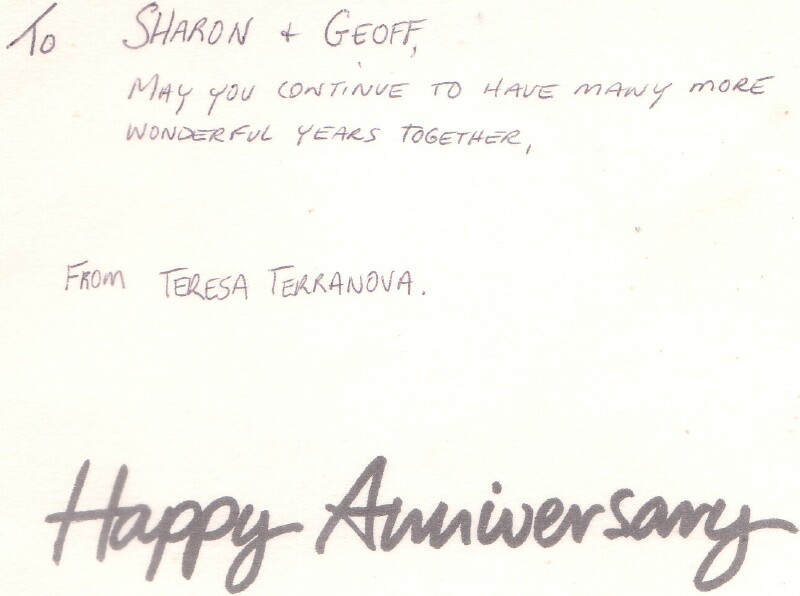 To SHARON + GEOFF,
MAY YOU CONTINUE TO HAVE MANY MORE
WONDERFUL YEARS TOGETHER,
FROM TERESA TERRANOVA.
Happy Anniversary